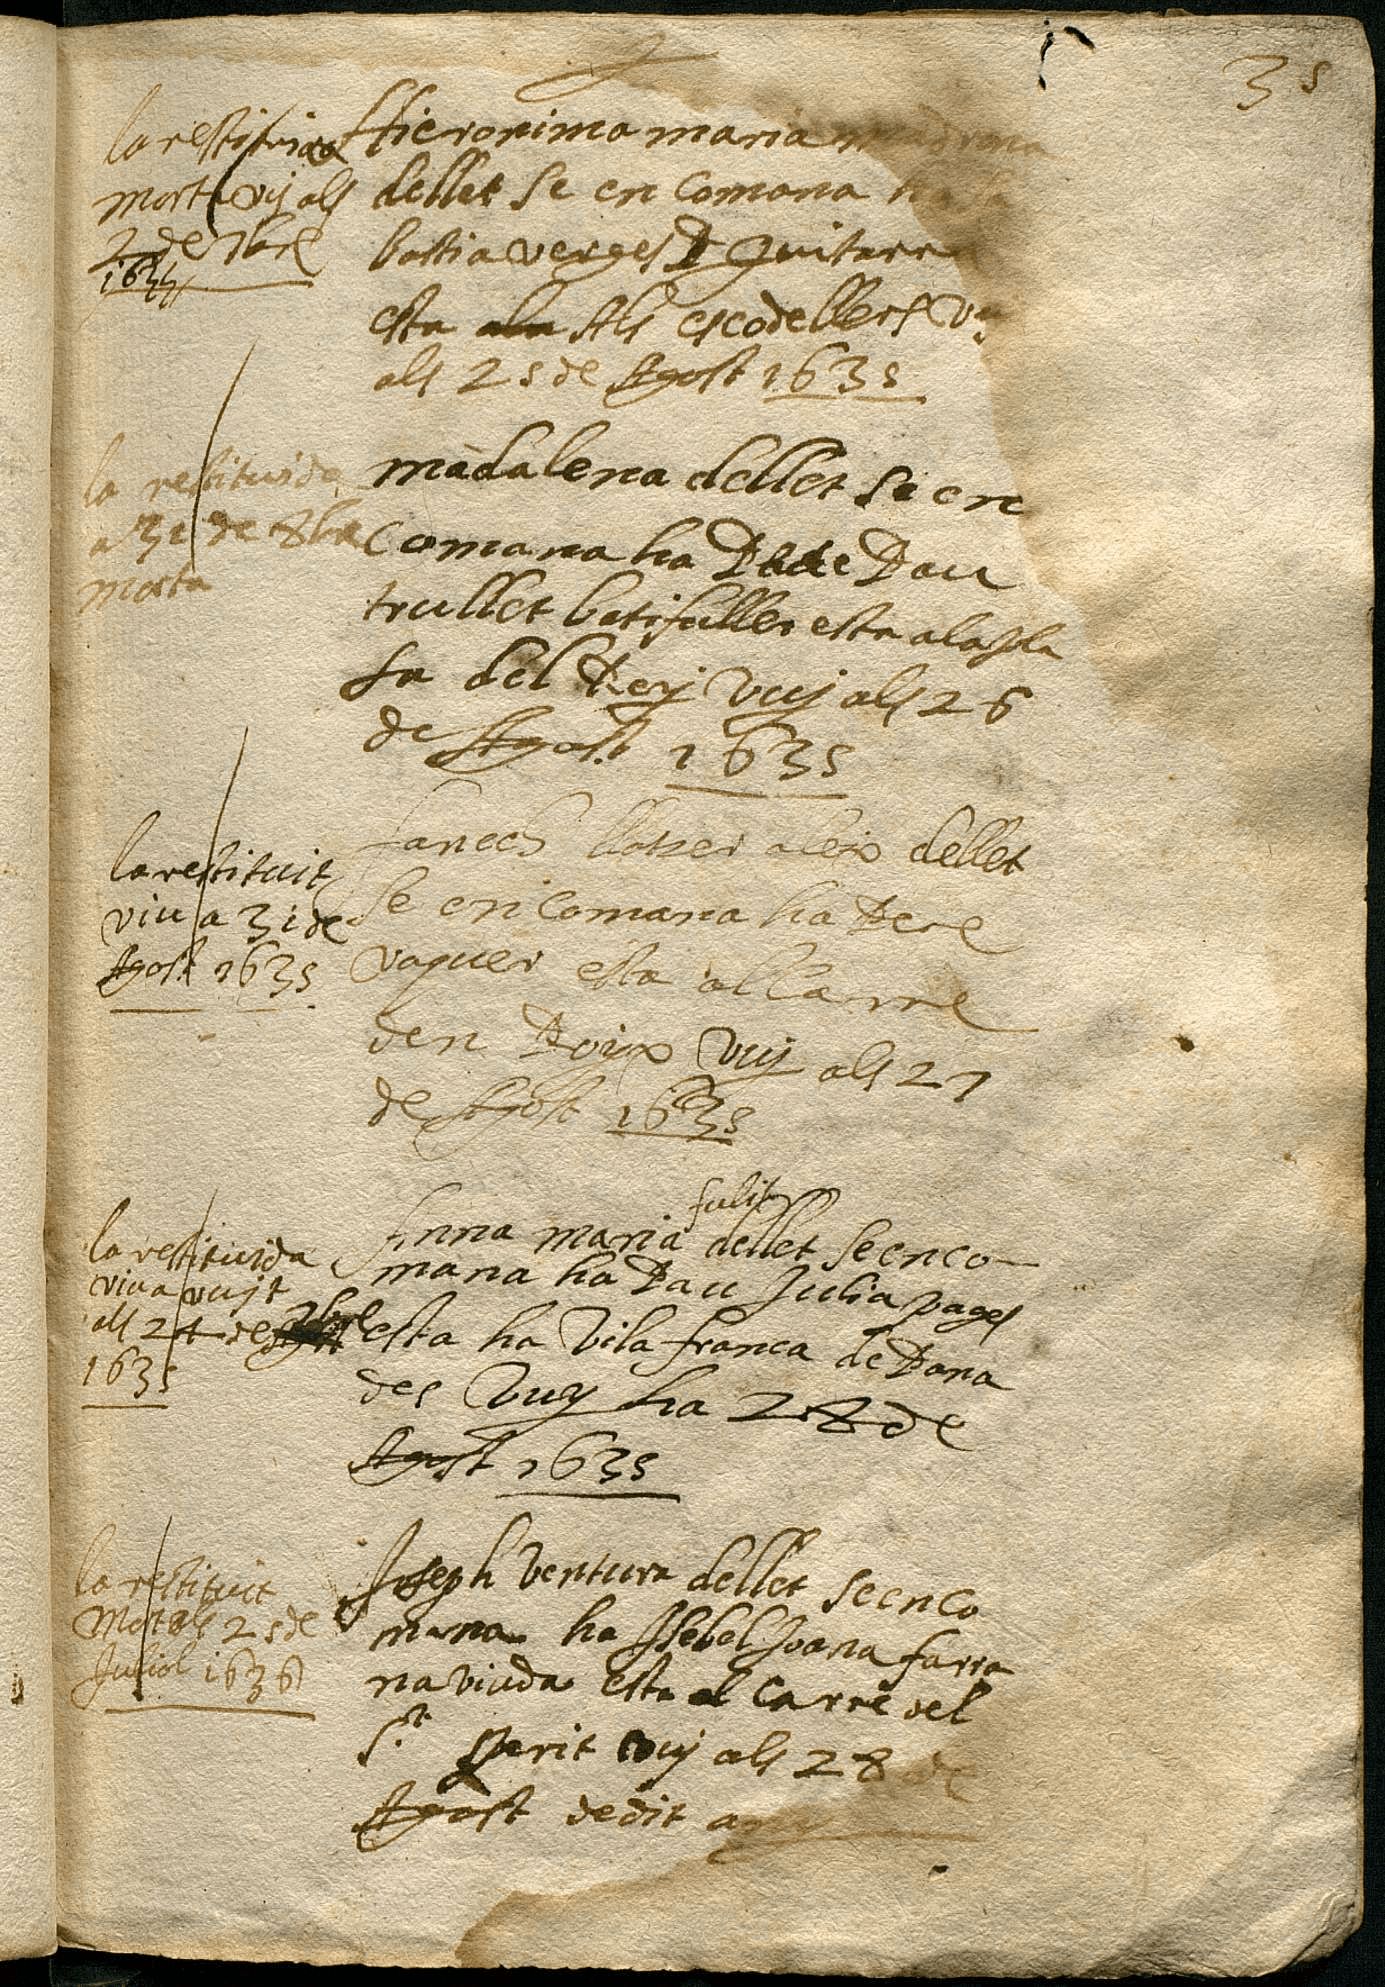 35
la restituida
morta vij als
2 de 7bre
1635
Hieronima maria madrona
dellet se en comana ha Se
bastia verges D guitarr
esta als escodellers vuj
als 25 de Agost 1635
la restituida
a 31 de 8bre
morta
madalena dellet se en
Comana ha Pau
trullet batifuller esta a la pla
sa del Rey vuj als 26
de Agost 1635
la restituit
viu a 31 de
Agost 1635
fanech llatzer aleix dellet
se en comana ha Pere
vaquer esta al Carre
den Roix vuj als 27
de Agost 1635
la restituida
viva vuyt
als 24 de 7bre
1635
Julia
Anna maria dellet se en co
mana ha Pau Julia pages
esta ha Vila franca de Pana
des vuy ha 28 de
Agost 1635
la restituit
Mort als 25 de
Juliol 1636
Joseph Ventura dellet se en co
mana ha Isebel Joana farra
na viuda esta al Carre del
St sperit vuj als 28 de
Agost dedit any